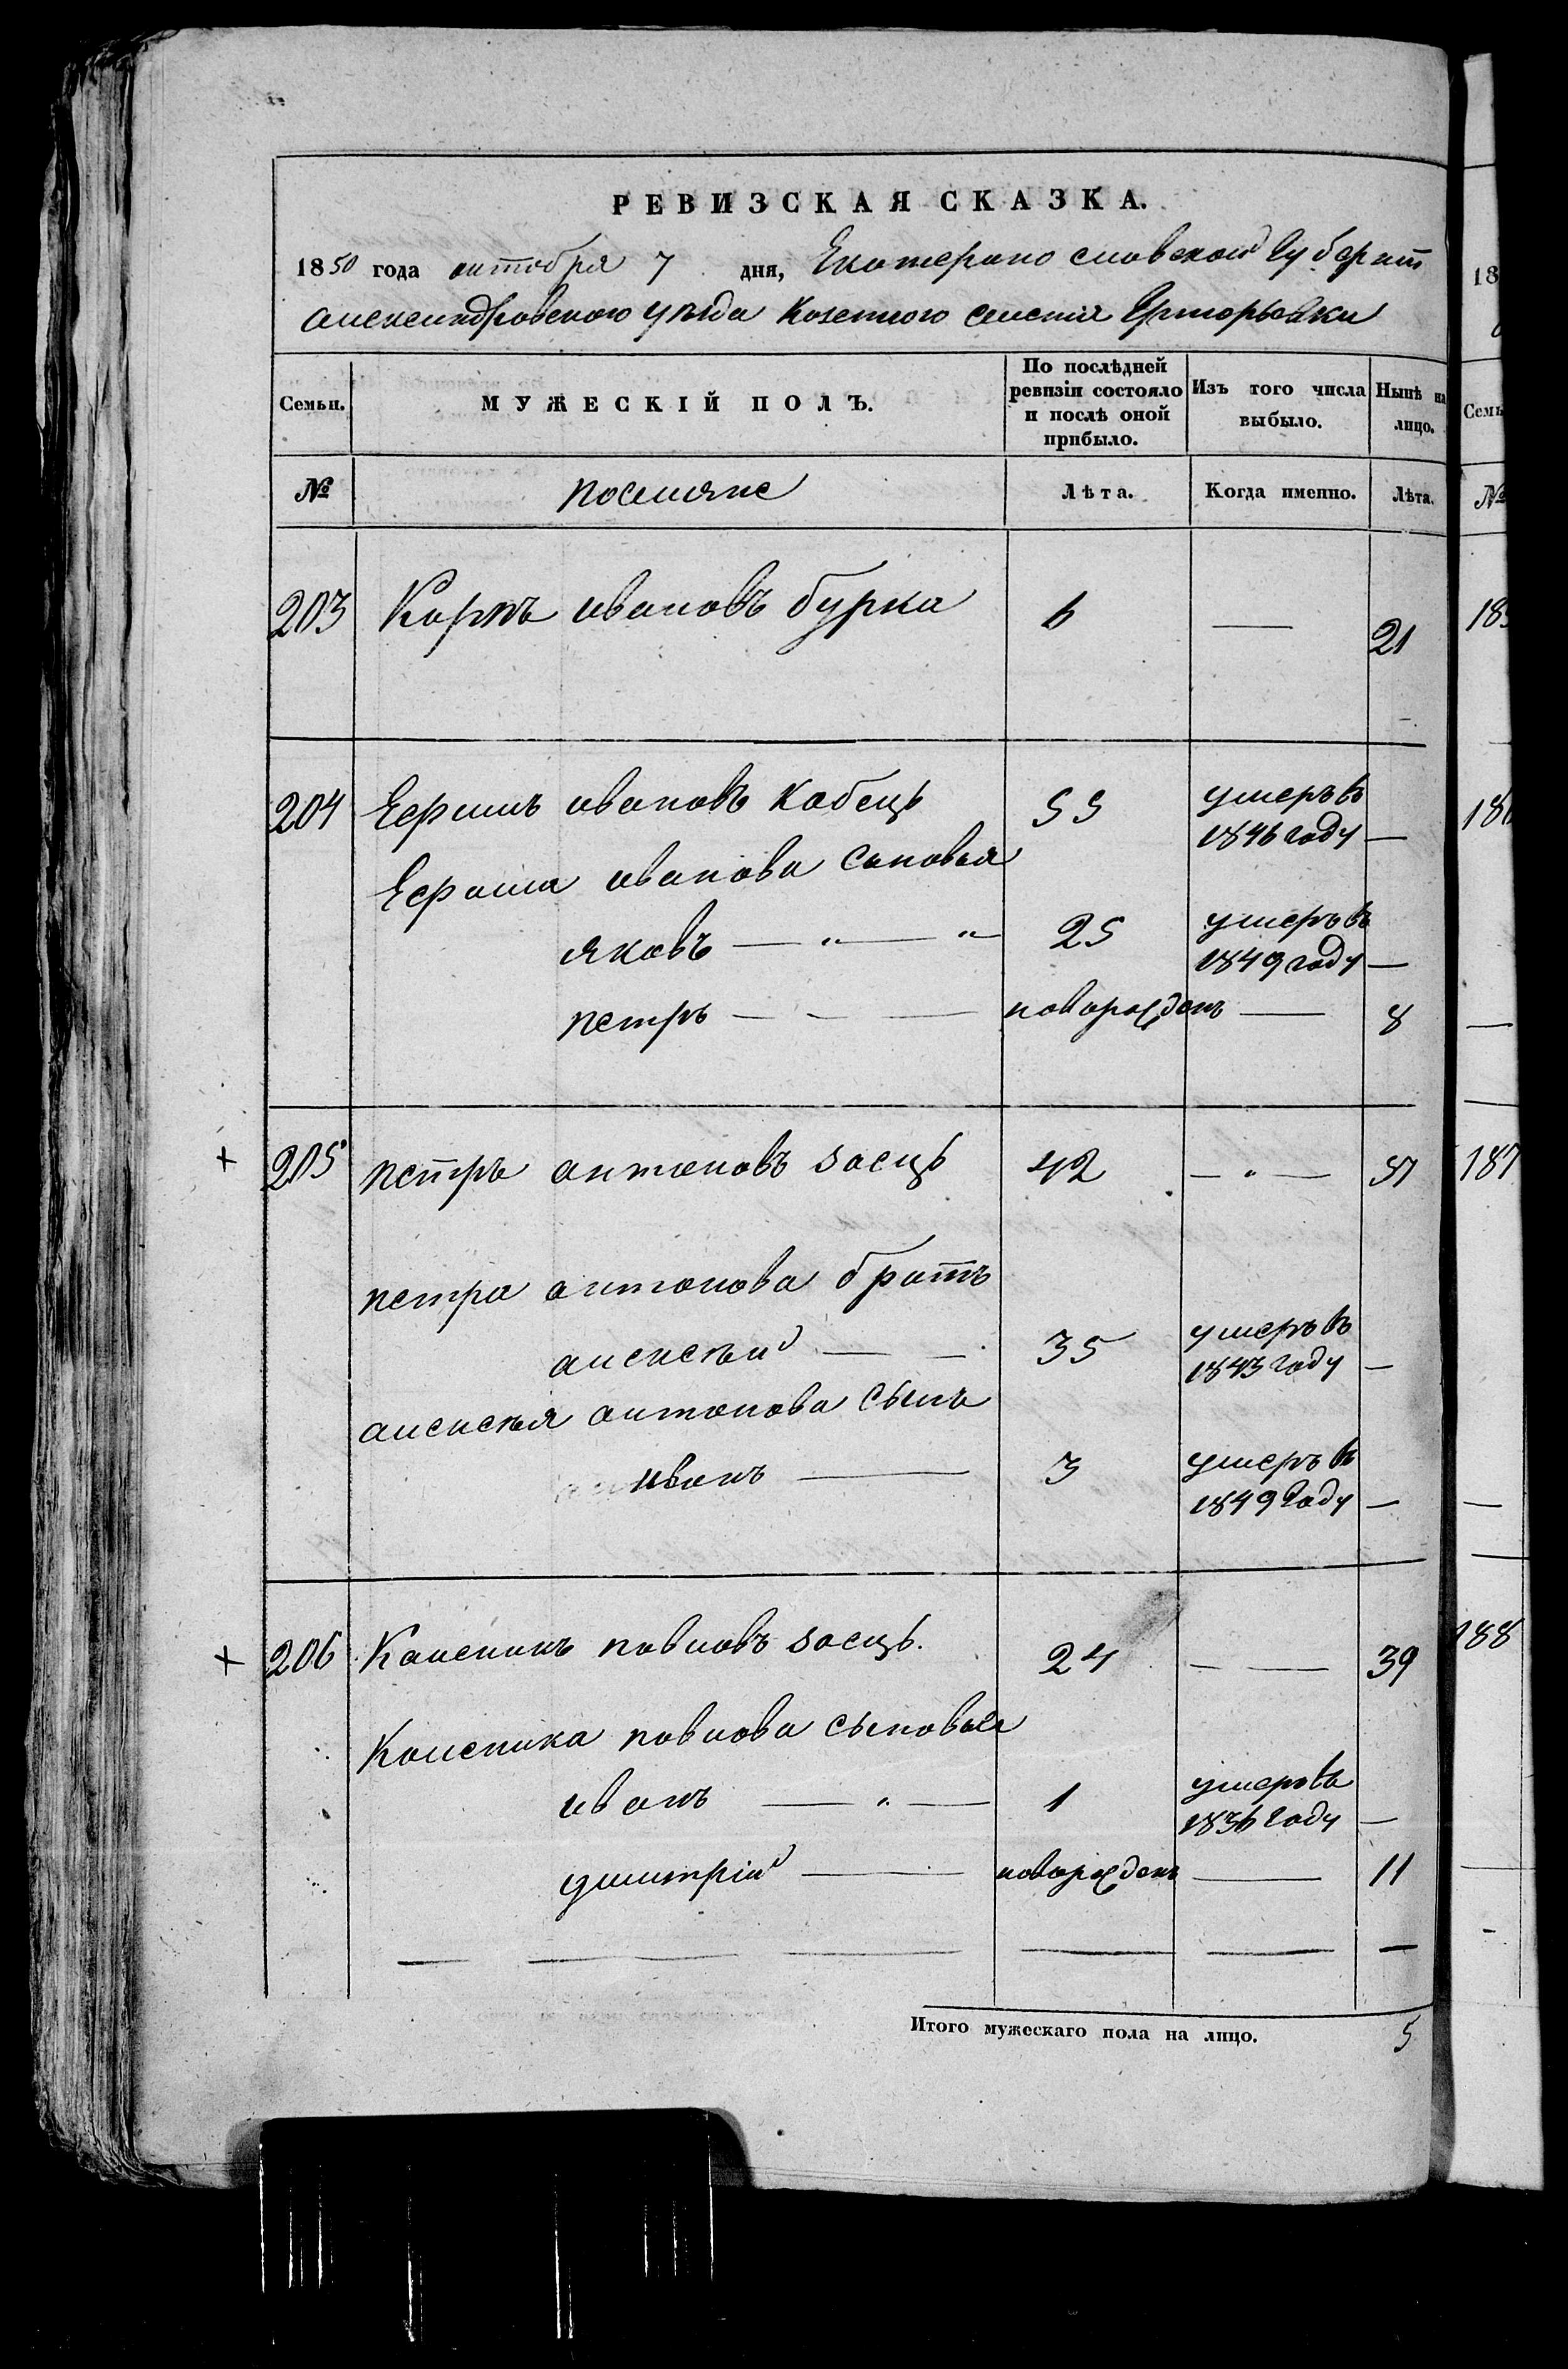 РЕВИЗСКАЯ СКАЗКА.
1850 года октобря 7 дня, Екатерино славской Губерніи
александровского уѣзда Козенного селенія
Семьи. МУЖЕСКІЙ ПОЛЪ. По послѣдней ревизіи состояло и послѣ оной прибыло. Изъ того числа выбыло. Нынѣ на лицо.
№ поселяне Лѣта. Когда именно. Лѣта.
203 Карпъ ивановъ бурка 6 — 21
204 Ефимъ ивановъ кобецъ 55 умеръ въ 1846 году —
Ефима иванова сыновья
яковъ — " — " — 25 умеръ въ 1849 году —
петръ — — — новорожденъ — 8
205 петръ антоновъ заецъ 42 — " — 57
петра антонова братъ
алексѣй — — 35 умеръ въ 1843 году —
алексѣя антонова сынъ
иванъ — 3 умеръ въ 1849 году —
206 Каленикъ павловъ заецъ. 24 — — 39
Каленика павлова сыновья
иванъ — " — 1 умеръ въ 1836 году —
дмитрій — новорожденъ — 11
Итого мужескаго пола на лицо. 5
18
Семь
№
187
188